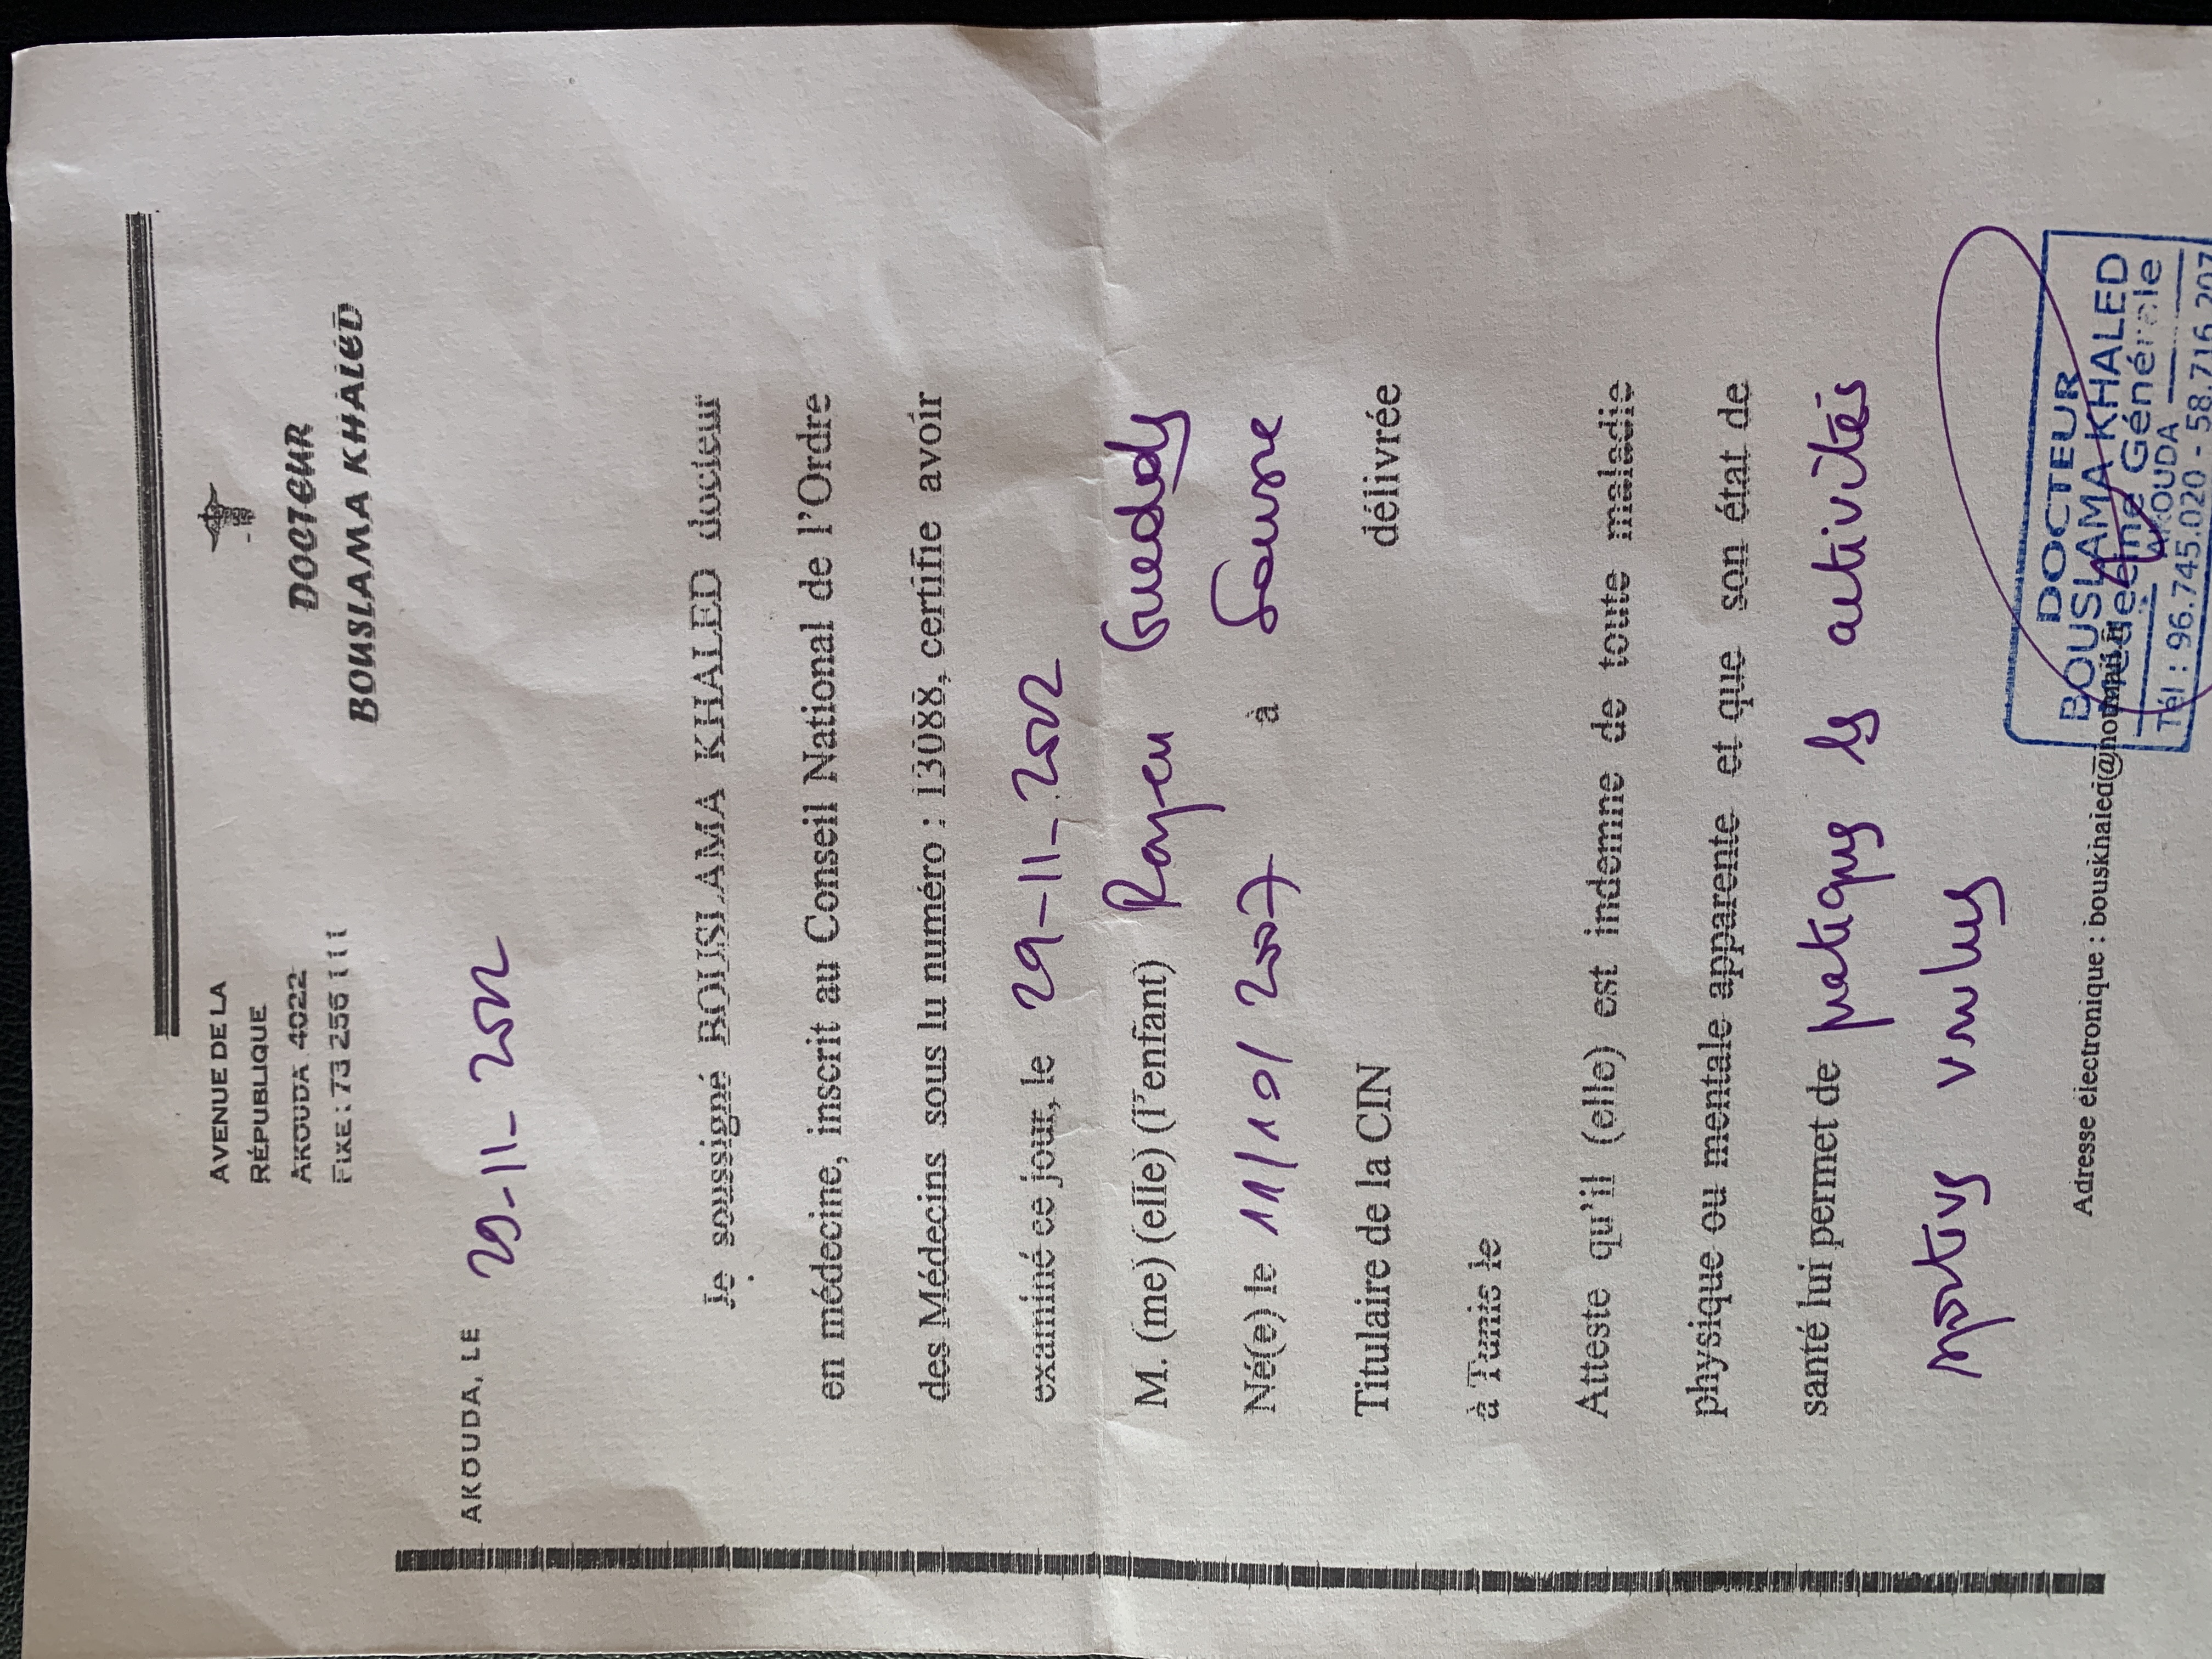 AVENUE DE LA
RÉPUBLIQUE
AKOUDA 4022
FIXE : 73 256 111
DOCTEUR
BOUSLAMA KHALED
AKOUDA, LE 29-11-2022
Je soussigné BOUSLAMA KHALED docteur
en médecine, inscrit au Conseil National de l'Ordre
des Médecins sous lu numéro : 13088, certifie avoir
examiné ce jour, le 29-11-2022
M. (me) (elle) (l'enfant) Rayen
Né(e) le 11/10/2007 à Sousse
Titulaire de la CIN délivrée
à Tunis le
Atteste qu'il (elle) est indemne de toute maladie
physique ou mentale apparente et que son état de
santé lui permet de pratiquer les activités
sportives
DOCTEUR
BOUSLAMA KHALED
Médecine Générale
AKOUDA
Tél : 96.745.020 - 58.716.207
Adresse électronique :